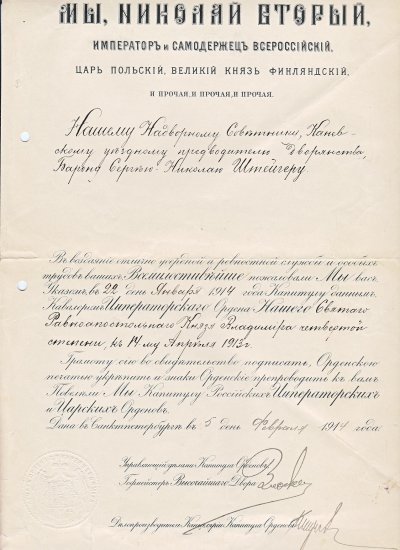 МЫ, НИКОЛАЙ ВТОРЫЙ,
ИМПЕРАТОРЪ и САМОДЕРЖЕЦЪ ВСЕРОССІЙСКІЙ,
ЦАРЬ ПОЛЬСКІЙ, ВЕЛИКІЙ КНЯЗЬ ФИНЛЯНДСКІЙ,
И ПРОЧАЯ, И ПРОЧАЯ, И ПРОЧАЯ.
Нашему Надворному Совѣтнику, Канев-
скому уѣздному предводителю дворянства,
Барону Сергѣю-Николаю Штейгеру.
Въ воздаяніе отлично усердной и ревностной службы и особыхъ
трудовъ вашихъ Всемилостивѣйше пожаловали Мы васъ
Указомъ, въ 22 день Января 1914 года Капитулу даннымъ,
Кавалеромъ Императорскаго Ордена Нашего Святаго
Равноапостольнаго Князя Владимира четвертой
степени, къ 14 му Апрѣля 1913 г.
Грамоту сію во свидѣтельство подписать, Орденскою
печатью укрѣпить и знаки Орденскіе препроводить къ вамъ
Повелѣли Мы Капитулу Россійскихъ Императорскихъ
и Царскихъ Орденовъ.
Дана въ Санктпетербургѣ въ 5 день Февраля 1914 года.
Управляющій дѣлами Капитула Орденовъ,
Гофмейстеръ Высочайшаго Двора
Дѣлопроизводитель Канцеляріи Капитула Орденовъ